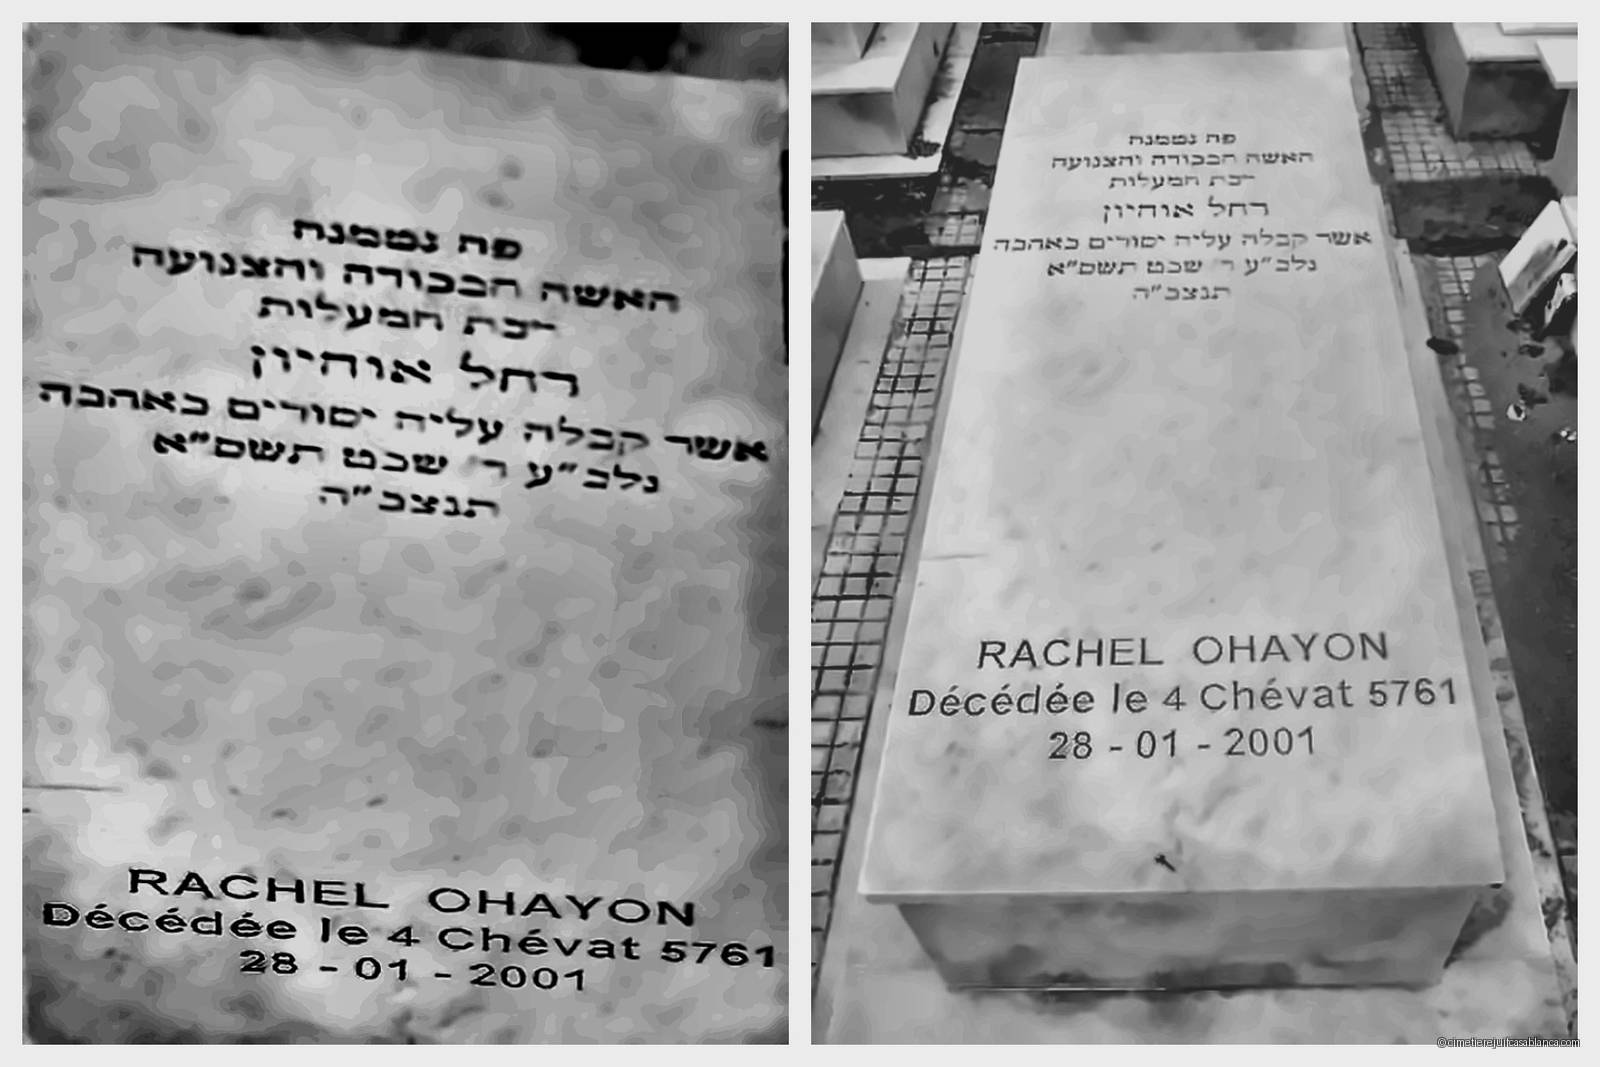 פה נטמנה
האשה הכבודה והצנועה
רבת המעלות
רחל אוחיון
אשר קבלה עליה יסורים באהבה
נלב"ע ד' שבט תשס"א
תנצב"ה
RACHEL OHAYON
Décédée le 4 Chévat 5761
28 - 01 - 2001
פה נטמנה
האשה הכבודה והצנועה
רבת המעלות
רחל אוחיון
אשר קבלה עליה יסורים באהבה
נלב"ע ד' שבט תשס"א
תנצב"ה
RACHEL OHAYON
Décédée le 4 Chévat 5761
28 - 01 - 2001
©cimetierejuifcasablanca.com